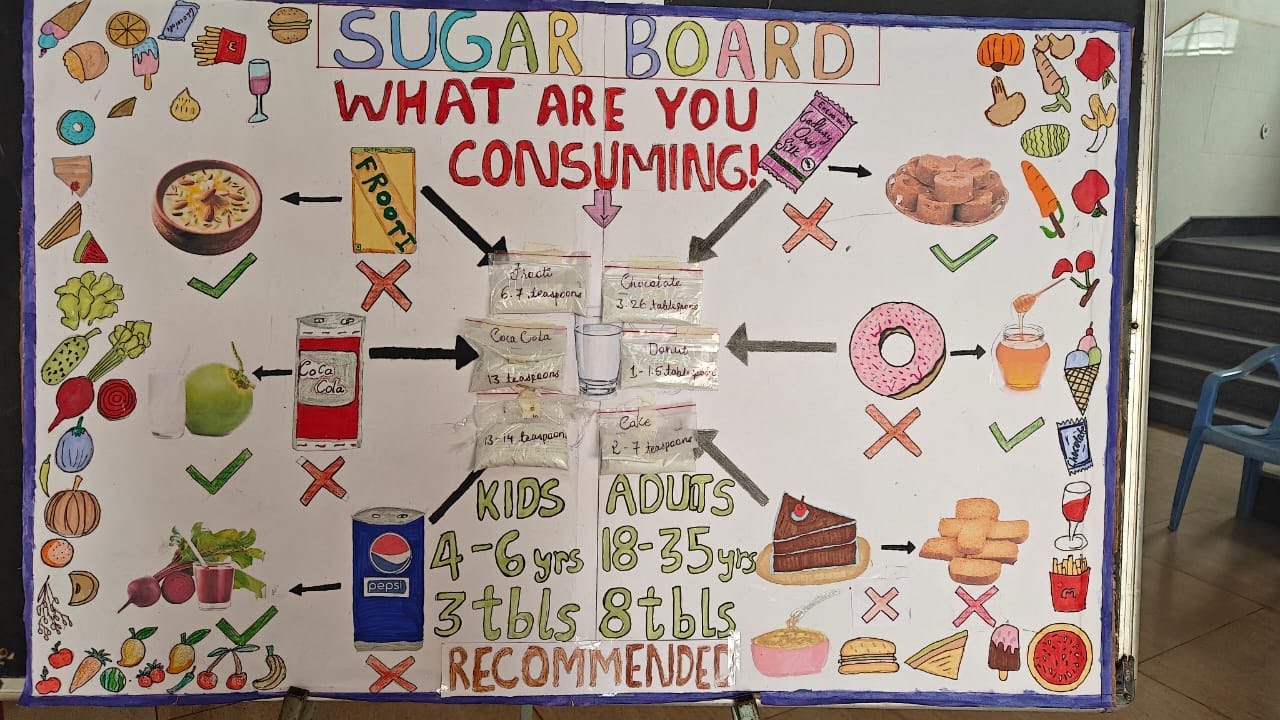 SUGAR BOARD
WHAT ARE YOU
CONSUMING!
Chocolate
M
FROOTI
Frooti
6-7 teaspoons
Chocolate
3-26 tablespoons
Coca Cola
Coca Cola
13 teaspoons
Donut
1-1.5 tablespoons
13-14 teaspoons
Cake
2-7 teaspoons
Chocolate
pepsi
KIDS
4-6 yrs
3 tbls
ADUTS
18-35 yrs
8 tbls
M
RECOMMENDED